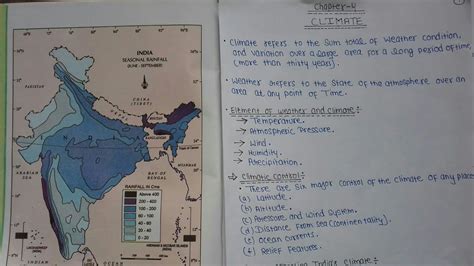 INDIA
SEASONAL RAINFALL
(JUNE - SEPTEMBER)
PAKISTAN
CHINA
(TIBET)
NEPAL
BANGLADESH
MYANMAR
ARABIAN
SEA
BAY OF
BENGAL
RAINFALL IN Cms
Above 400
200 - 400
100 - 200
80 - 100
60 - 80
40 - 60
20 - 40
0 - 20
INDIAN
OCEAN
Chapter-4
CLIMATE
• Climate refers to the Sum total of Weather condition,
and variation over a large area for a long period of time
(more than thirty years).
• Weather refers to the State of the atmosphere over an
area at any point of Time.
→ Element of weather and climate:-
→ Temperature.
→ Atmospheric Pressure.
→ Wind.
→ Humidity.
→ Precipitation.
→ Climatic Control:-
• There are Six major control of the climate of any place
(a) Latitude.
(b) Altitude.
(c) Pressure and Wind System.
(d) Distance from Sea (Continentality).
(e) Ocean currents.
(f) Relief Features.
India's Climate :-